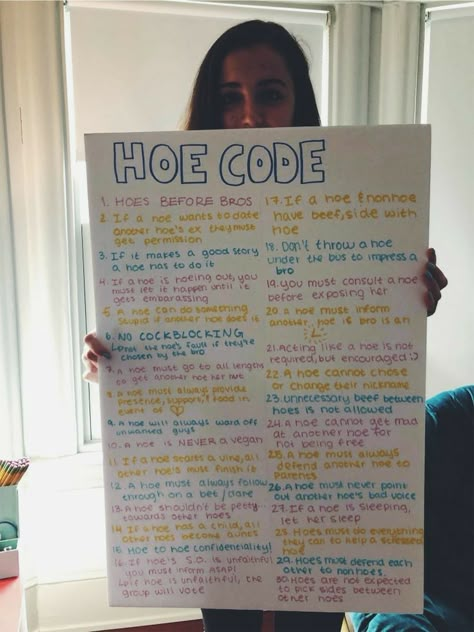 HOE CODE
1. HOES BEFORE BROS
2. If a hoe wants to date
another hoe's ex they must
get permission
3. If it makes a good story
a hoe has to do it
4. If a hoe is hoeing out, you
must let it happen until it
gets embarassing
5. A hoe can do something
stupid if another hoe does it
6. NO COCKBLOCKING
not the hoe's fault if they're
chosen by the bro
7. A hoe must go to all lengths
to get another hoe her nut
8. A hoe must always provide
presence, support, & food in
event of
9. A hoe will always ward off
unwanted guys
10. A hoe is NEVER a vegan
11. If a hoe starts a vine, all
other hoes must finish it
12. A hoe must always follow
through on a bet / dare
13. A hoe shouldn't be petty
towards other hoes
14. If a hoe has a child, all
other hoes become aunts
15. Hoe to hoe confidentiality!
16. If hoe's S.O. is unfaithful
you must inform ASAP!
If hoe is unfaithful, the
group will vote
17. If a hoe & nonhoe
have beef, side with
hoe
18. Don't throw a hoe
under the bus to impress a
bro
19. you must consult a hoe
before exposing her
20. A hoe must inform
another hoe if bro is an
21. Acting like a hoe is not
required, but encouraged :)
22. A hoe cannot chose
or change their nickname
23. unnecessary beef between
hoes is not allowed
24. A hoe cannot get mad
at another hoe for
not being free
25. A hoe must always
defend another hoe to
parents
26. A hoe must never point
out another hoe's bad voice
27. If a hoe is sleeping,
let her sleep
28. Hoes must do everything
they can to help a stressed
hoe
29. Hoes must defend each
other to nonhoes
30. Hoes are not expected
to pick sides between
other hoes